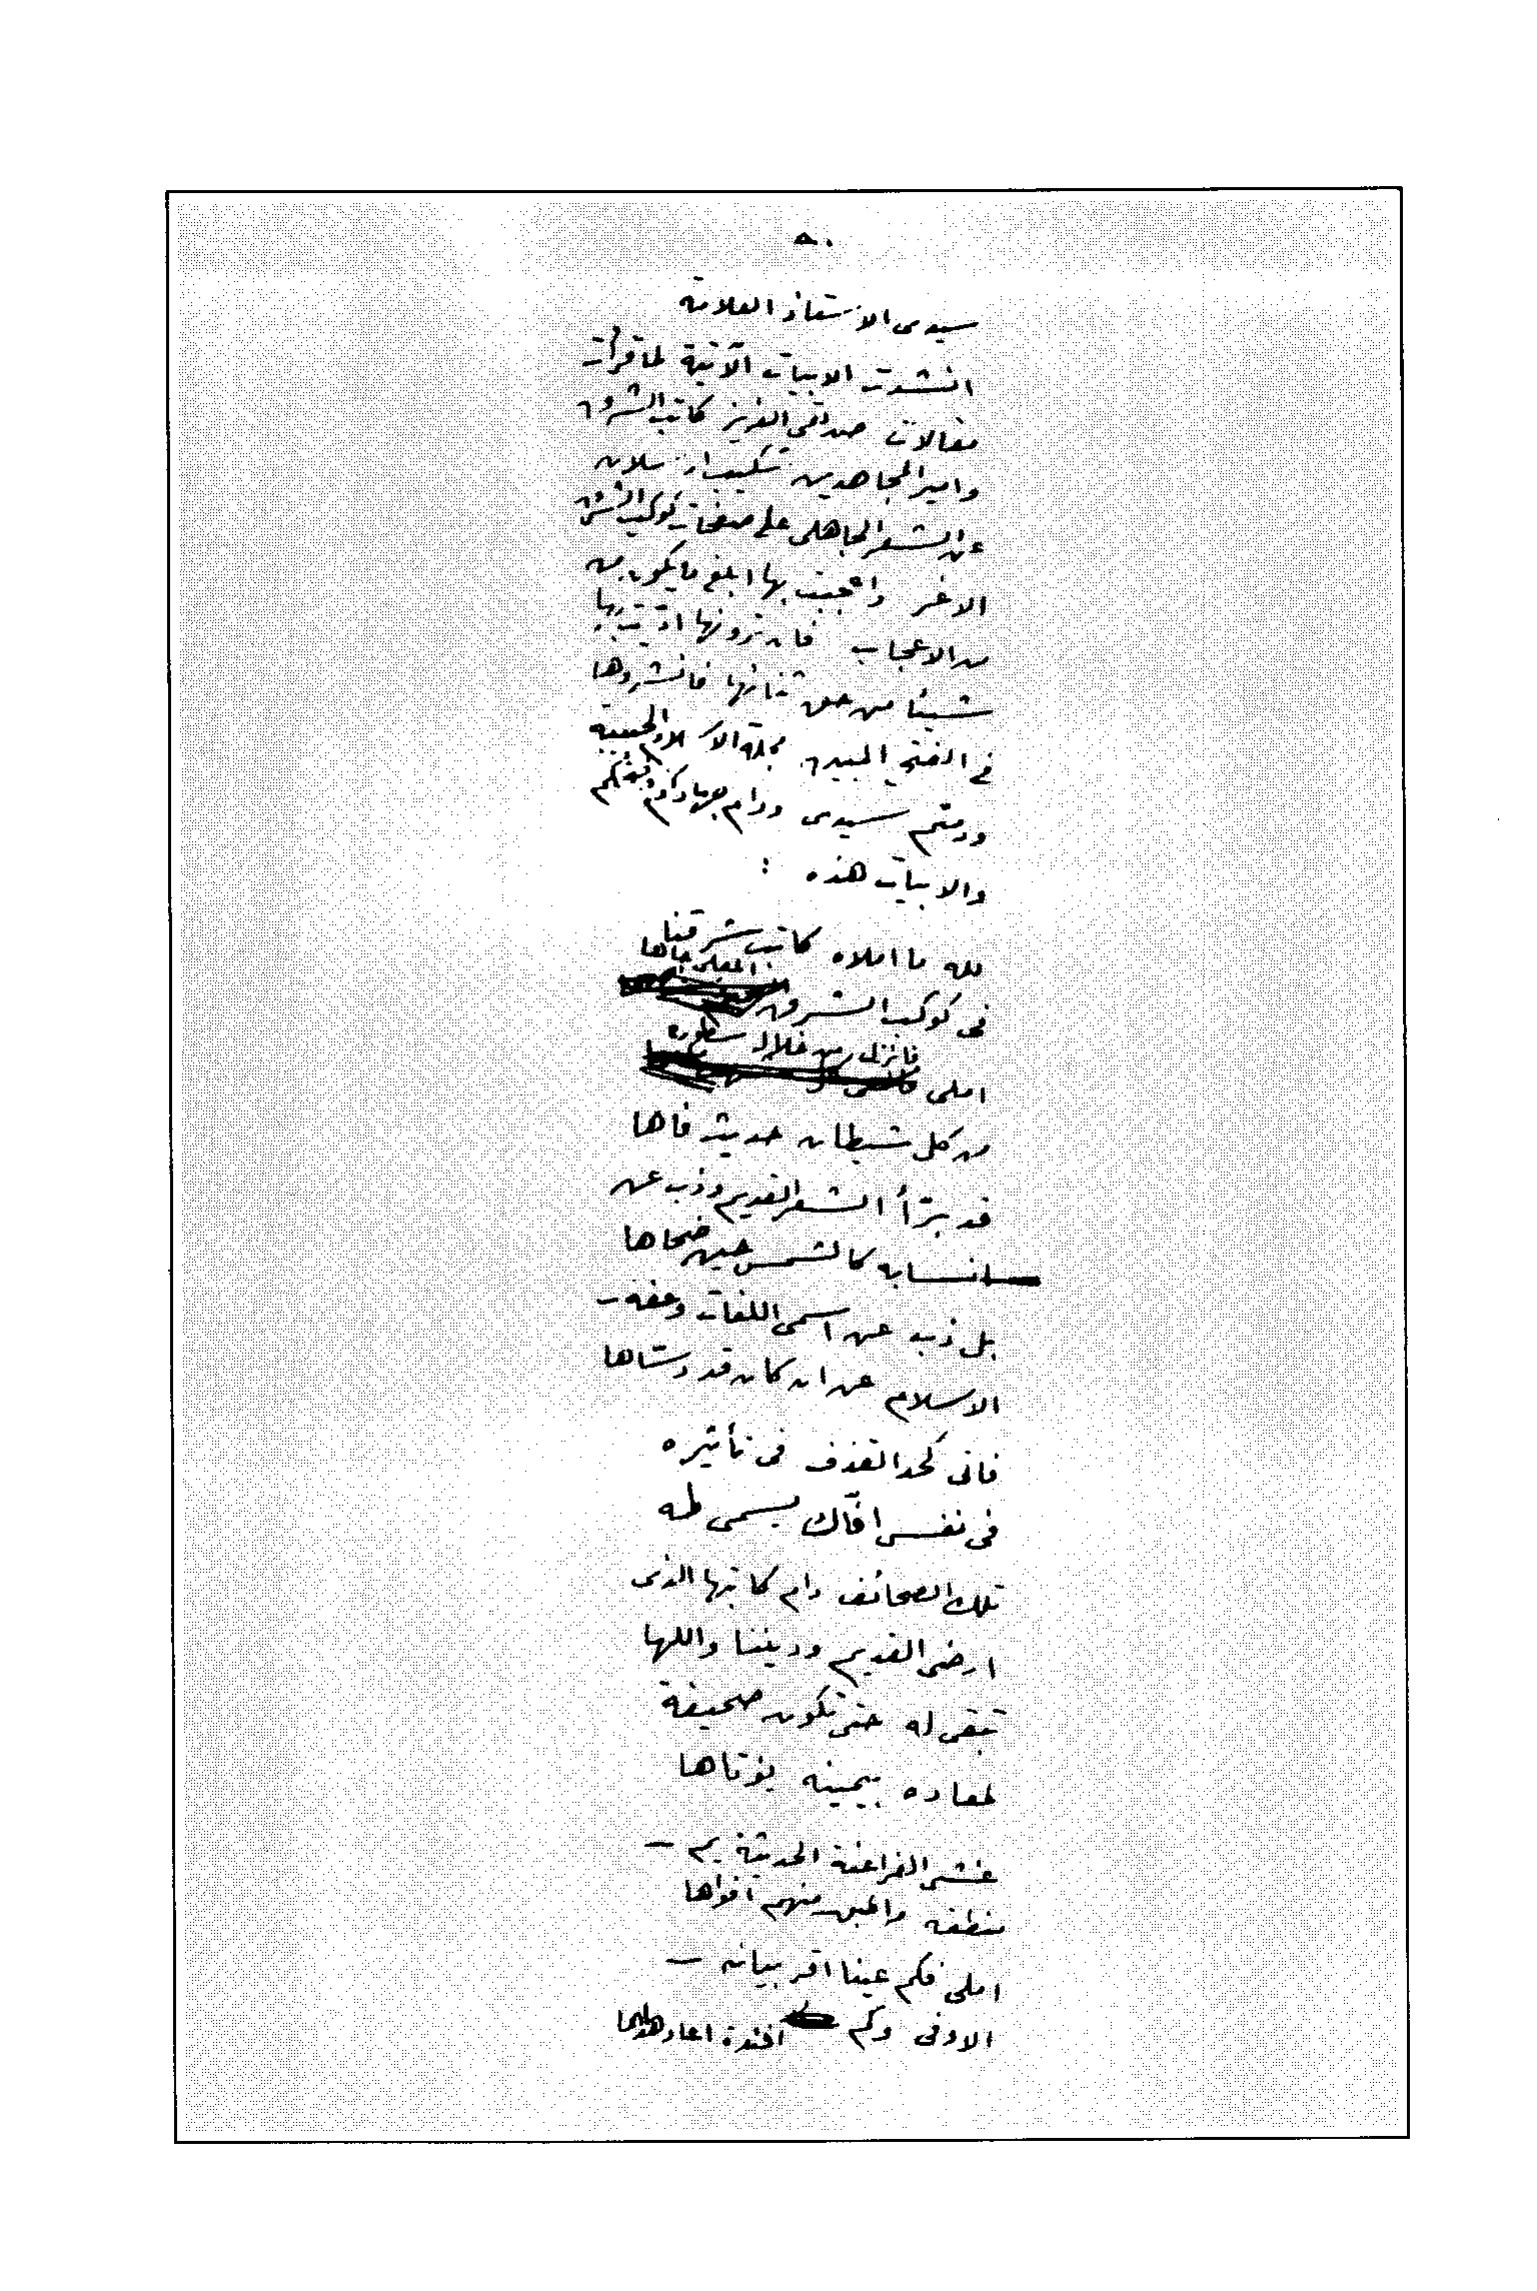 ٨٠
سيدى الاستاذ العلامة
انشدت الابيات الآتية لما قرأت
مقالات صديقى العزيز كاتب الشرق
وامير المجاهدين شكيب ارسلان
عن الشعر الجاهلى على صفحات كوكب الشرق
الاغر واعجبت بها ابلغ ما يكون من
من الاعجاب فان ترونها
شيئا من حق فانشروها
فى الفتح المبين مجلة
ودمتم سيدى ودام
والابيات هذه :
لله ما املاه كاتب شرقنا
المعلى جاها
فى كوكب الشرق
فانزل من خلال سطوره
املى
من كل شيطان حديث فاها
قد برّأ الشعر القديم وذب عن
انسابه كالشمس حين ضحاها
بل ذب عن اسمى اللغات وعفة
الاسلام عن ان كان قد دسّاها
فاتى كحد القذف فى تأثيره
فى نفس افّاك يسمى طه
تلك الصحائف دام كاتبها الذى
ارضى القديم وديننا واللها
تبقى له حتى تكون صحيفة
لمعاده بيمينه يؤتاها
غشى الفراعنة الحديثة يم
منطقه والجم منهم افواها
املى فكم عينا اقر بيانه
الاوفى وكم افئدة اعاد